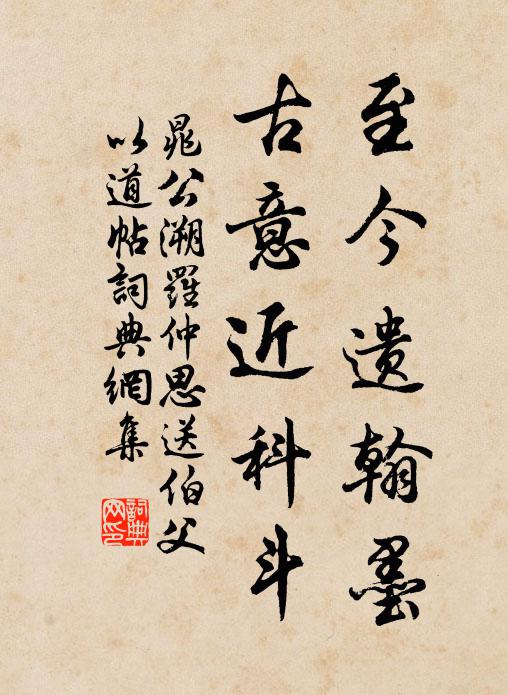 至今遗翰墨
古意近科斗
晁公溯羅仲思送伯父
以道帖詞典網集
詞典网印